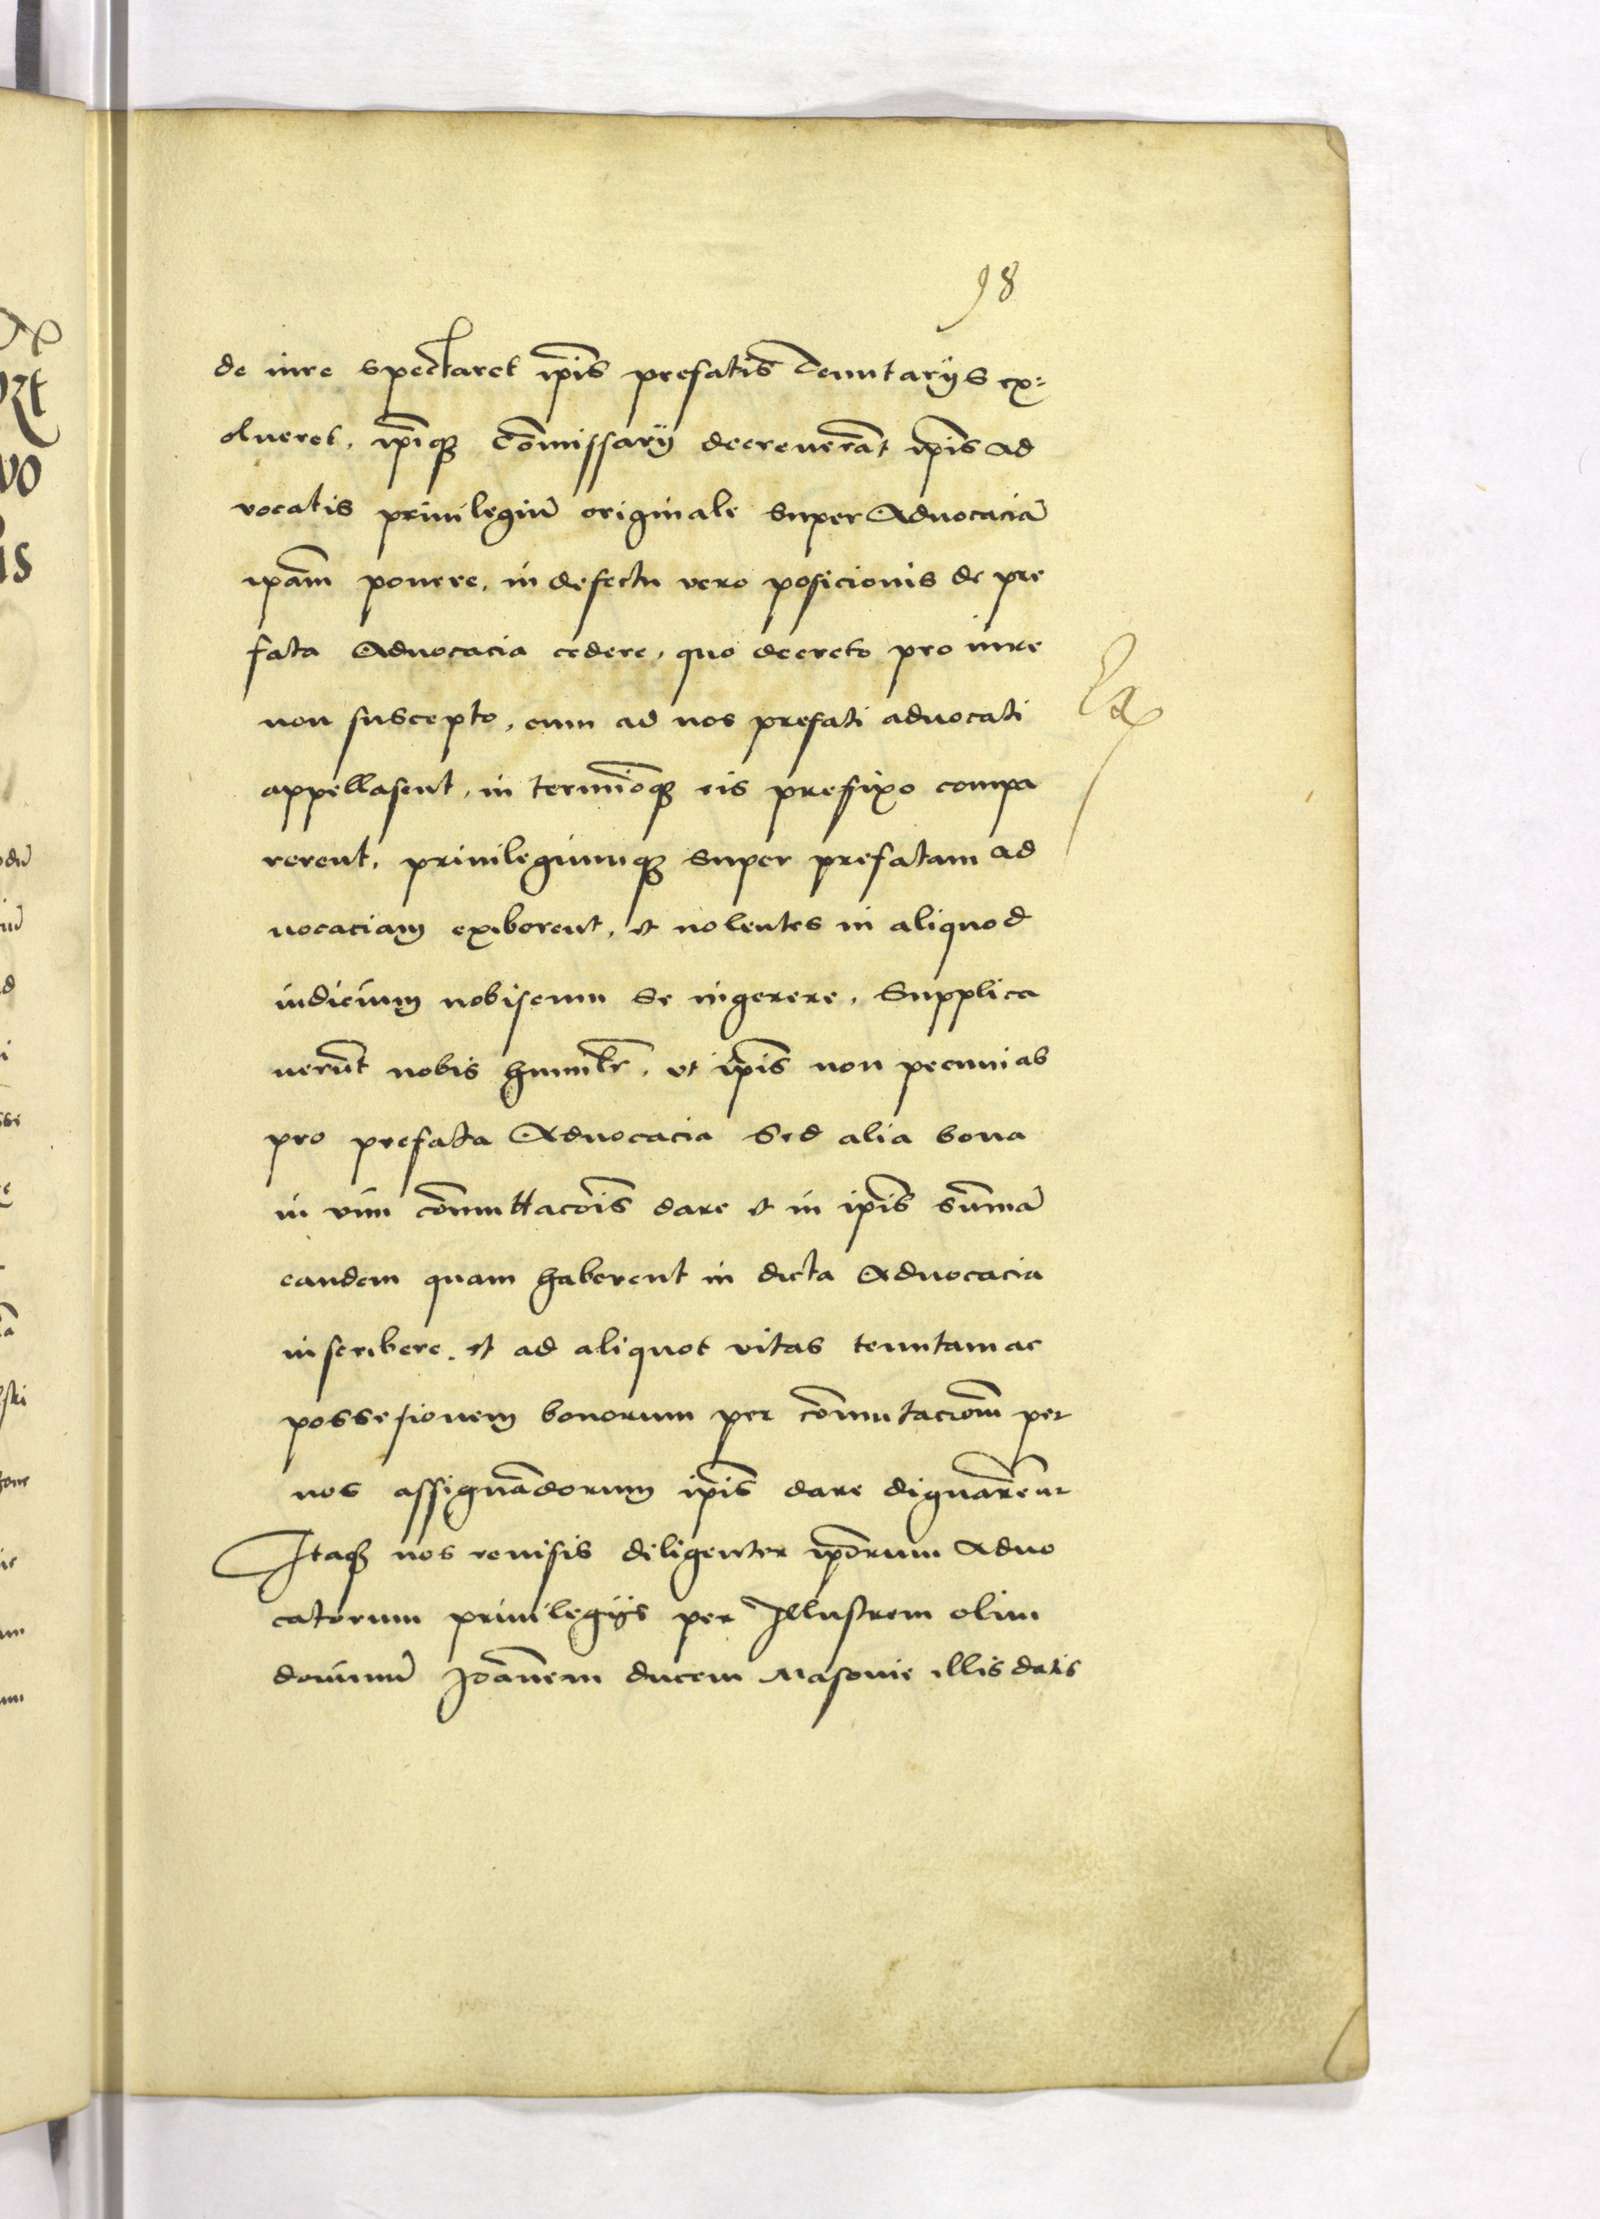 98
de iure spectaret ip̄is prefatis Tenutarijs ex=
olueret. ip̄iq3 Com̄issarij decreuerāt ip̄is ad
vocatis priuilegiū originale super Aduocaciā
ip̄am ponere. in defectu vero posicionis de pre
fata Aduocacia cedere, quo decreto pro iure
non suscepto, cum ad nos prefati aduocati
appellasent, in terminōq3 eis prefixo compa
rerent, priuilegiumq3 super prefatam ad
uocaciam exiberent, et nolentes in aliquod
iudicium nobiscum se ingerere, Supplica
uerūt nobis humilr̄, vt ip̄is non pecunias
pro prefata Aduocacia Sed alia bona
in vim com̄uttacōis dare et in ip̄is sum̄ā
eandem quam haberent in dicta Aduocacia
inscribere. et ad aliquot vitas tenutam ac
possesionem bonorum per com̄utaciōm per
nos assignādorum ip̄is dare dignarēmur
Itaq3 nos reuisis diligenter ip̄orum Aduo
catorum priuilegijs per Illustrem olim
dominū Joān̄em ducem Masouie illis datis